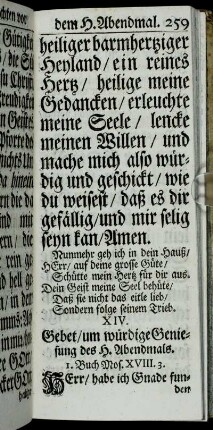 dem H. Abendmal. 259
heiliger barmhertziger
Heyland/ ein reines
Hertz/ heilige meine
Gedancken/ erleuchte
meine Seele/ lencke
meinen Willen/ und
mache mich also wür-
dig und geschickt/ wie
du weisest/ daß es dir
gefällig/ und mir selig
seyn kan/ Amen.
Nunmehr geh ich in dein Hauß/
HErr/ auf deine grosse Güte/
Schütte mein Hertz für dir aus.
Dein Geist meine Seel behüte/
Daß sie nicht das eitle lieb/
Sondern folge seinem Trieb.
XIV.
Gebet/ um würdige Genie-
sung des H. Abendmals.
1. Buch Mos. XVIII. 3.
HErr/ habe ich Gnade fun-
den